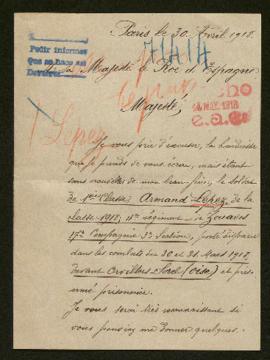 Paris le 30 Avril 1918.
71414
Pedir informes
Que se hace así
A sa Majesté le Roi d'Espagne.
Majesté,
MAY. 1918
Lepez
Je vous prie d'excuser la hardiesse
que je prends de vous écrire, mais étant
sans nouvelles de mon beau frère, le soldat
de 1ère Classe Armand Lepez de
la classe 1918, Régiment de Zouaves
Compagnie 3e Section, porté disparu
dans les combats du 30 et 31 Mars 1918
devant Orvillers-Sorel (Oise) et présumé
prisonnier.
Je vous serai très reconnaissant si
vous pouviez me donner quelques